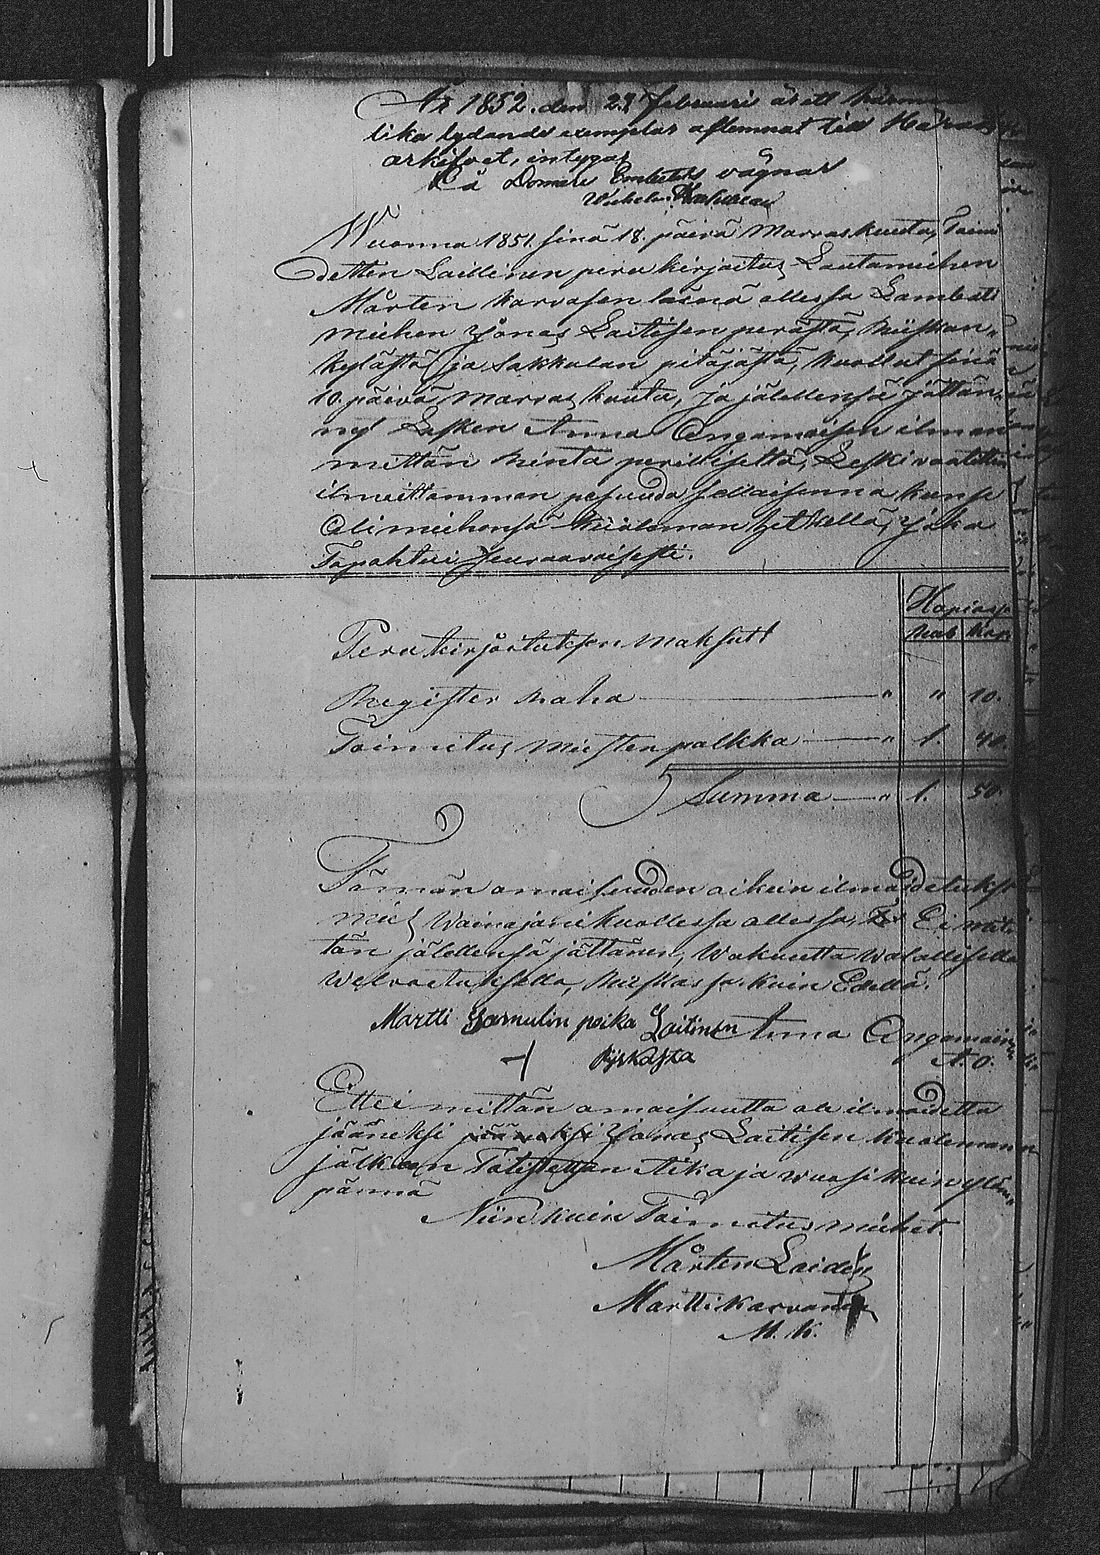 År 1852. den 23 Februari är ett härmed
lika lydande exemplar aflemnat till Härads
arkifvet, intygar
På Domare Embetets vägnar
Wuonna 1851. sinä 18. päivä Marraskuuta, Toimi
dettin Laillinen peru kirjoitus Lautamiehen
Mårten Karvasen läsnä ollessa Lambuoti
miehen Jonas Laitisen perästä, Kiiskan
kylästä ja Sakkolan pitäjästä, kuollut sinä
10. päivä Marraskuuta, ja jälellensä jättän
nyt Lesken Anna Angamaisen ilman
mittän hinta perillisettä, Leski vaatettin
ilmoittamman pesuuda sellaisenna kun se
Oli miehensä kuoleman hetkellä, Joka
Tapahtui seuraavaisesti.
Hopiassa
Rub Kop
Peru kirjoituksen Maksutt
Register raha " " 10.
Toimitus Miesten palkka " 1. 40.
Summa " 1. 50.
Tämän omaisuuden oikein ilmoidetuksi
mies Wainajani kuollessa ollessa, Ei mit
tän jälellensä jättänen, Wakuutta Walallisella
Welvoetuksella, Kieskassa kuin Edellä.
Martti Samulin poika Laitinen Anna Angamainen
Pyskaska A. O.
Ettei mittän omaisuutta ole ilmoidettu
jääneksi jääneksi Jonas Laitisen kuolemann
jälkeen Totistettan Aika ja wuosi kuin yläm
pännä
Niin kuin Toimitus miehet.
Mårten Laiden
Martti Karvanen
M. K.